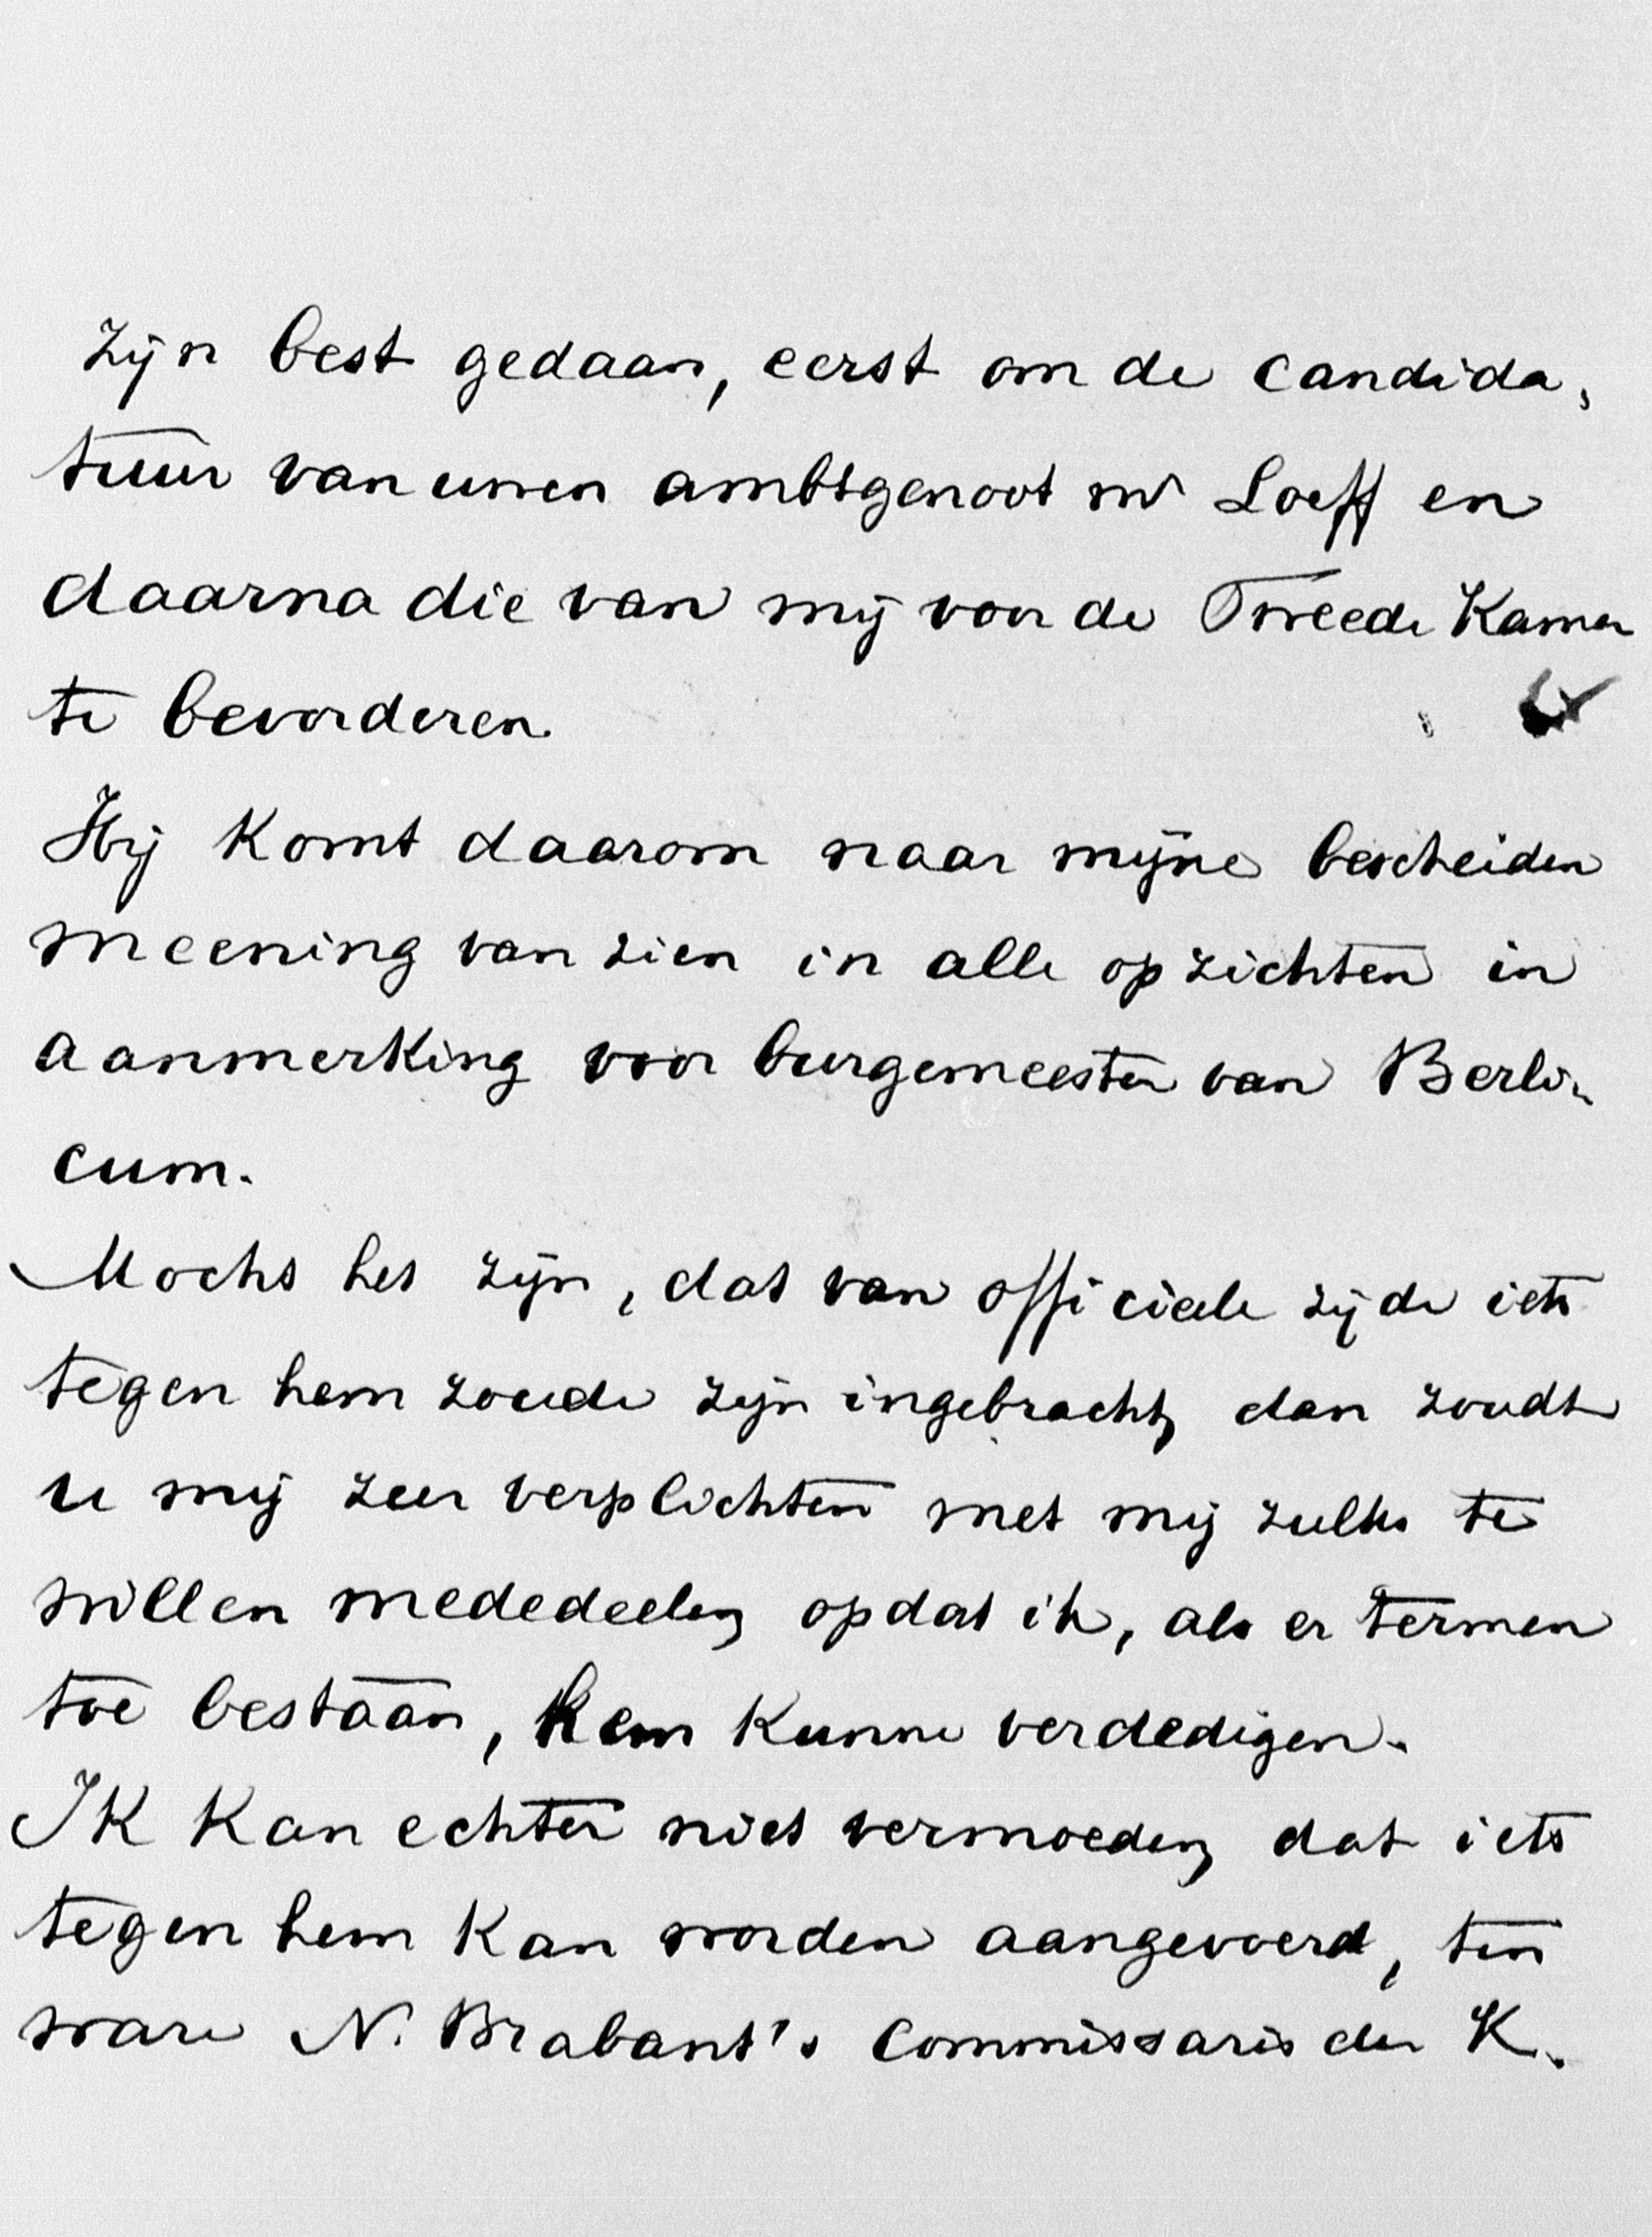 zijn best gedaan, eerst om de candida,
tuur van uwen ambtgenoot mr Loeff en
daarna die van mij voor de Tweede Kamer
te bevorderen.
Hij komt daarom naar mijne bescheiden
meening van zien in alle opzichten in
aanmerking voor burgemeester van Berli,
cum.
Mocht het zijn, dat van officieele zijde iets
tegen hem zoude zijn ingebracht, dan zoudt
u mij zeer verplichten met mij zulks te
willen mededeelen, opdat ik, als er termen
toe bestaan, hem kunne verdedigen.
Ik kan echter niet vermoeden, dat iets
tegen hem kan worden aangevoerd, ten
ware N. Brabant's Commissaris der K.